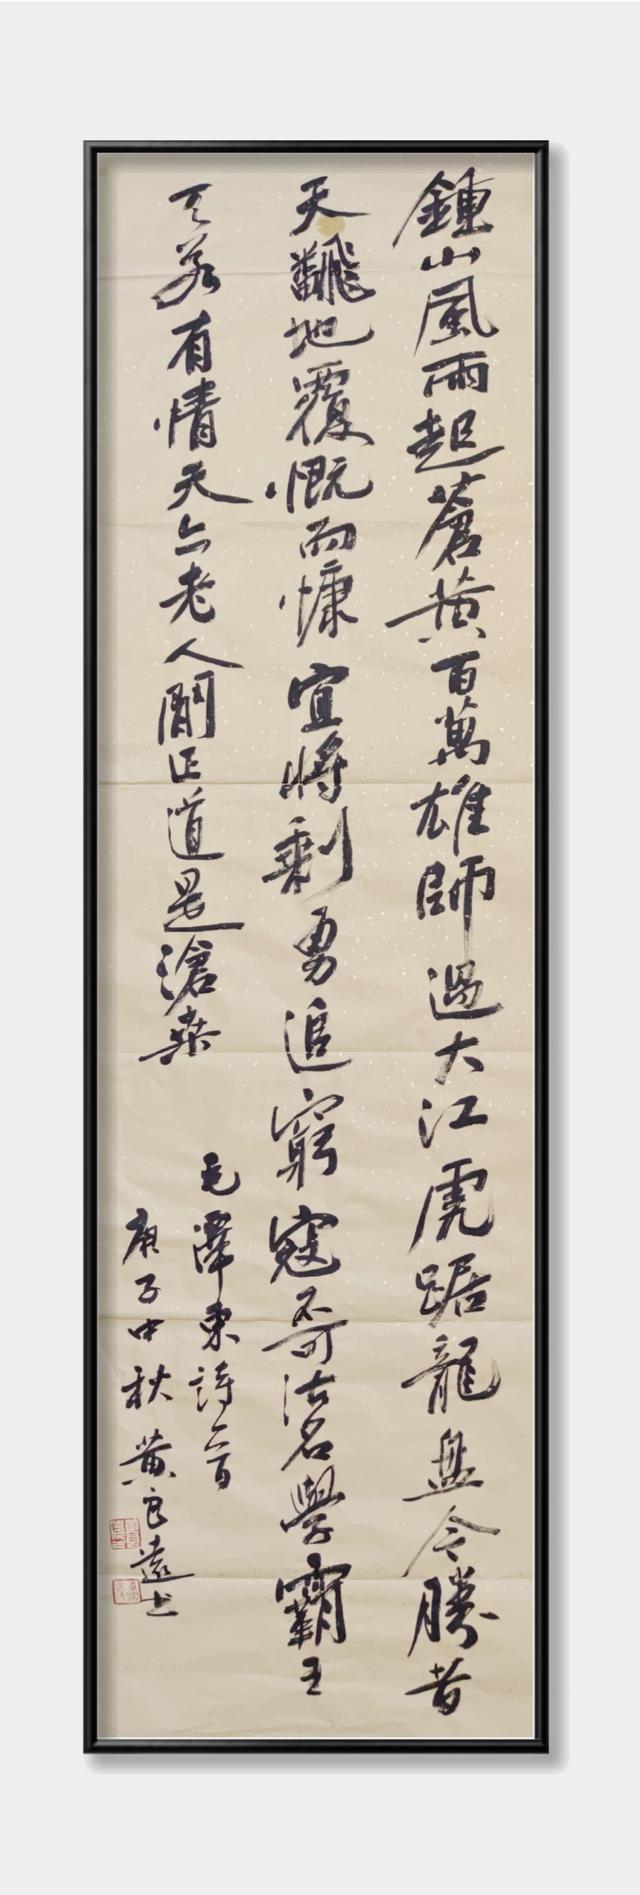 鍾山風雨起蒼黃百萬雄師過大江虎踞龍盤今勝昔
天飜地覆慨而慷宜將剩勇追窮寇不可沽名學霸王
天若有情天亦老人間正道是滄桑
毛澤東詩一首
庚子中秋黃良遠書